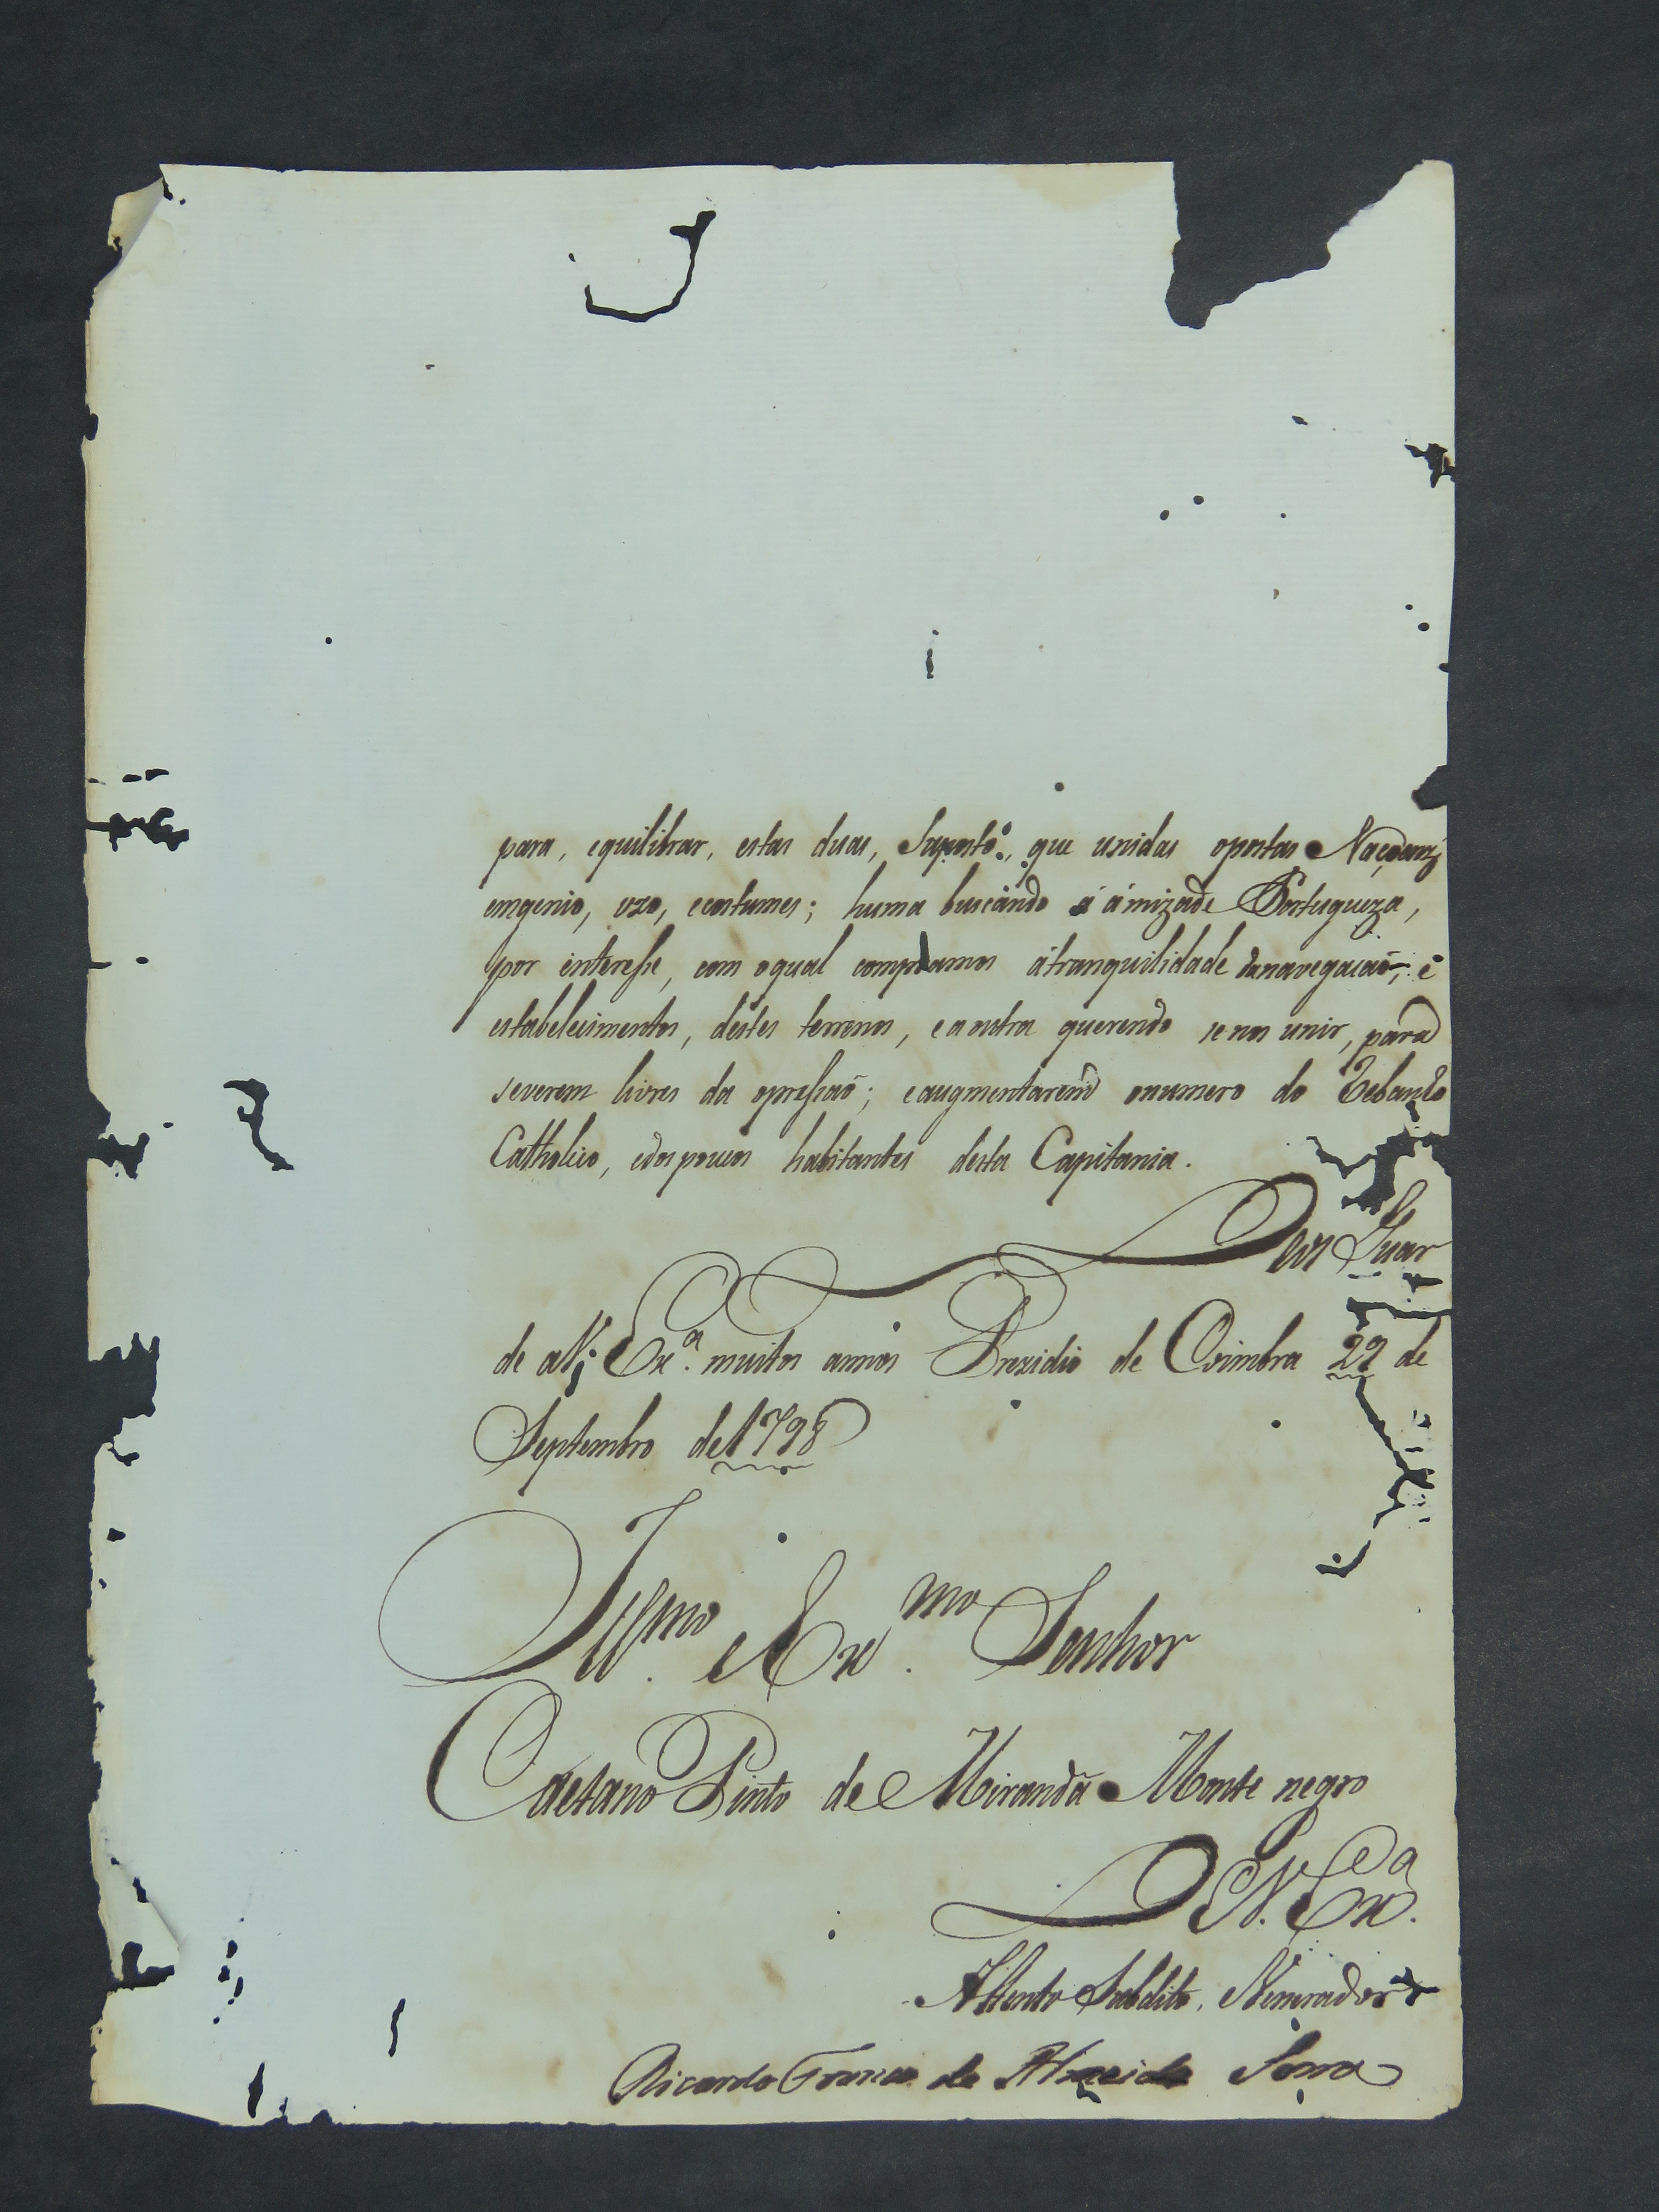 para, equilibrar, estas duas, Suposto, que unidas opostas Naçoens
emgenio, uzo, ecostumes; huma buscando á ámizade Portugueza,
por interesse, com oqual compramos átranquilidade danavegacaõ, é
estabelecimentos, déstes terrenos, eaoutra querendo senos unir, para
severem livres da opressaõ; eaugmentarem onumero do Rebanho
Catholico, edos poucos habitantes desta Capitania.
Deos Guar
de aV. Exª. muitos annos Prezidio de Coimbra 22 de
Septembro de1798
Illmo. e Exmo. Senhor
Caetano Pinto de Miranda Monte negro
De V. Exª.
Attento Subdito, Venerador
Ricardo Franco de Almeida Serra